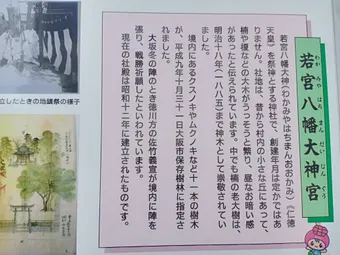 若宮八幡大神宮
わか みや はち まん だい じん ぐう
若宮八幡大神(わかみやはちまんおおかみ)(仁徳
天皇)を祭神とする神社で、創建年月は定かではあ
りません。社地は、昔から村内の小さな丘にあって、
楠や榎などの大木がうっそうと繁り、昼なお暗い感
があったと伝えられています。中でも楠の老大樹は、
明治十八年(一八八五)まで神木として崇敬されてい
ました。
境内にあるクスノキやムクノキなど十一本の樹木
が、平成九年十月三十一日大阪市保存樹林に指定さ
れました。
大坂冬の陣のとき徳川方の佐竹義宣が境内に陣を
張り、戦勝祈願したといわれています。
現在の社殿は昭和十二年に建立されたものです。
立したときの地鎮祭の様子